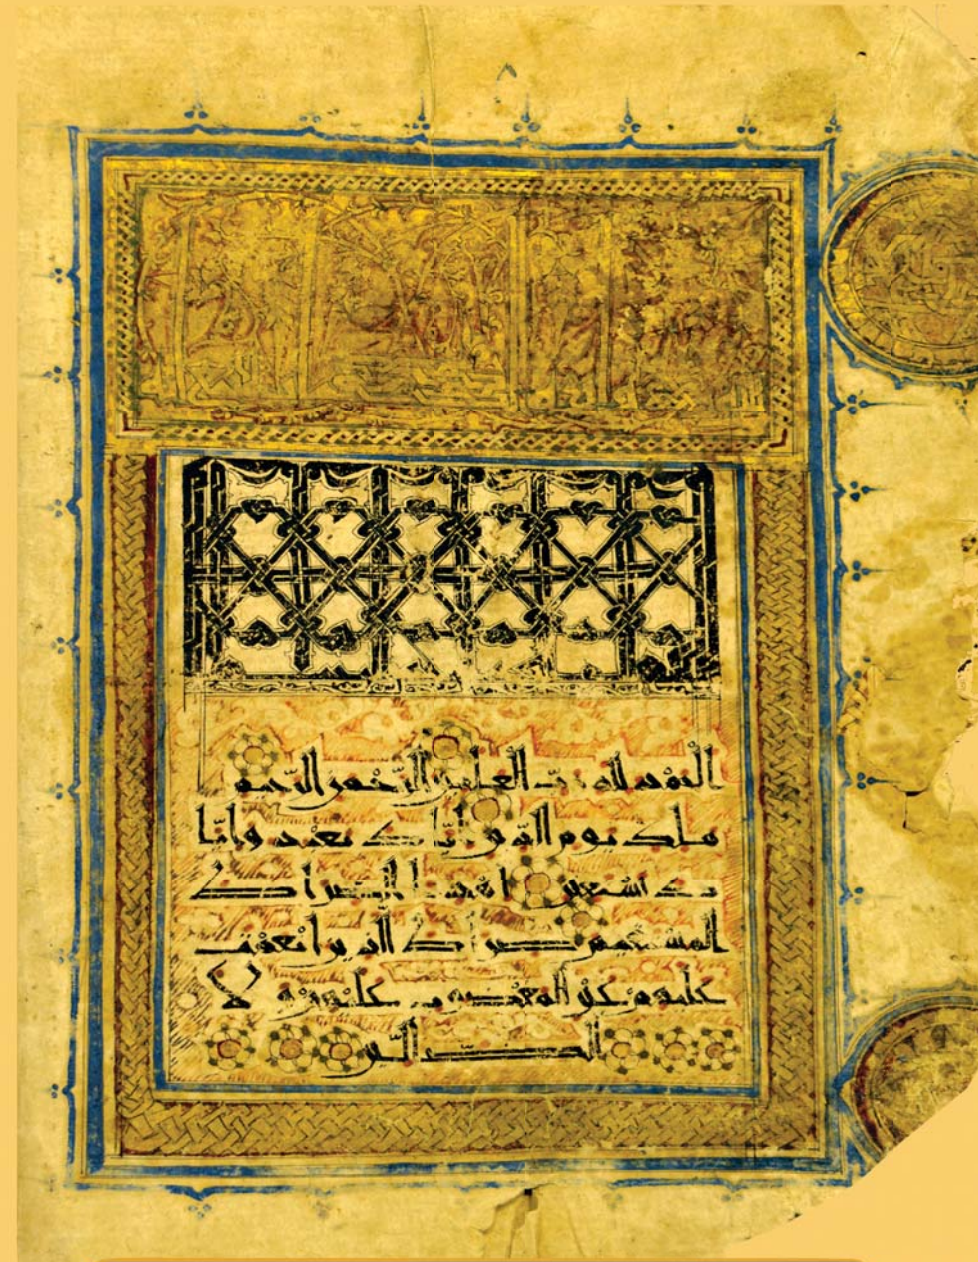 الحمد لله رب العلمين الرحمن الرحيم
ملك يوم الدين اياك نعبد وايا
ك نستعين اهدنا الصراط
المستقيم صراط الذين انعمت
عليهم غير المغضوب عليهم ولا
الضالين